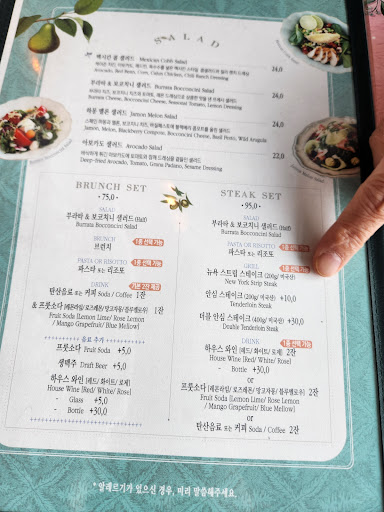 SALAD
멕시칸 콥 샐러드 Mexican Cobb Salad 24,0
Avocado, Red Beans, Corn, Cajun Chicken, Chili Ranch Dressing
부라타 & 보코치니 샐러드 Burrata Bocconcini Salad 24,0
Burrata Cheese, Bocconcini Cheese, Seasonal Tomato, Lemon Dressing
하몽 멜론 샐러드 Jamon Melon Salad 24,0
Jamon, Melon, Blackberry Compote, Bocconcini Cheese, Basil Pesto, Wild Arugula
아보카도 샐러드 Avocado Salad 22,0
Deep-fried Avocado, Tomato, Grana Padano, Sesame Dressing
BRUNCH SET
· 75,0 ·
SALAD
부라타 & 보코치니 샐러드 (Half)
Burrata Bocconcini Salad
BRUNCH 1종 선택 가능
브런치
PASTA OR RISOTTO 1종 선택 가능
파스타 또는 리조또
DRINK 기본 2잔 제공
탄산음료 또는 커피 Soda / Coffee 1잔
& 프룻소다 (레몬라임/로즈레몬/망고자몽/블루멜로우) 1잔
Fruit Soda (Lemon Lime/ Rose Lemon
/ Mango Grapefruit/ Blue Mellow)
음료 추가
프룻소다 Fruit Soda +5,0
생맥주 Draft Beer +5,0
하우스 와인 [레드/화이트/로제]
House Wine [Red/ White/ Rose]
- Glass +5,0
- Bottle +30,0
STEAK SET
· 95,0 ·
SALAD
부라타 & 보코치니 샐러드 (Half)
Burrata Bocconcini Salad
PASTA OR RISOTTO 1종 선택 가능
파스타 또는 리조또
GRILL 1종 선택 가능
뉴욕 스트립 스테이크 (200g/ 미국산)
New York Strip Steak
안심 스테이크 (200g/ 미국산) +10,0
Tenderloin Steak
더블 안심 스테이크 (400g/ 미국산) +30,0
Double Tenderloin Steak
DRINK 1종 선택 가능
하우스 와인 [레드/화이트/로제] 2잔
House Wine [Red/ White/ Rose]
- Bottle +30,0
or
프룻소다 (레몬라임/로즈레몬/망고자몽/블루멜로우) 2잔
Fruit Soda (Lemon Lime/ Rose Lemon
/ Mango Grapefruit/ Blue Mellow)
or
탄산음료 또는 커피 Soda / Coffee 2잔
* 알레르기가 있으신 경우, 미리 말씀해주세요.